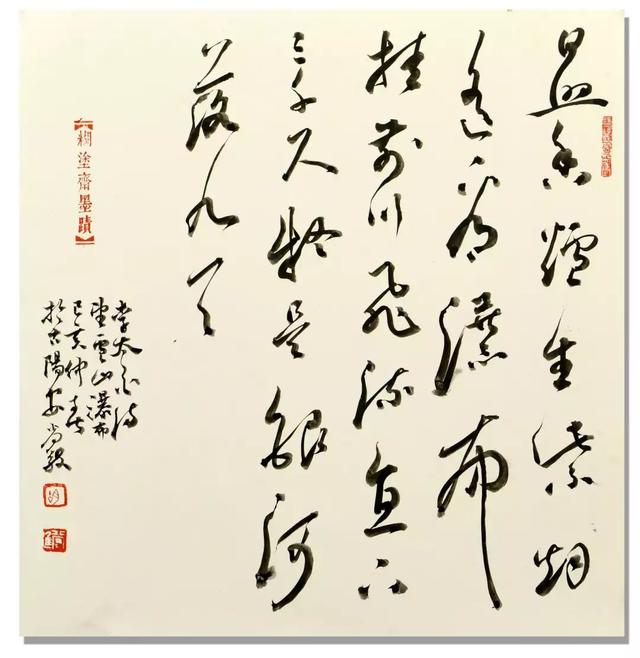 日照香爐生紫烟
遙看瀑布
挂前川飛流直下
三千尺疑是銀河
落九天
【糊塗齋墨蹟】
李太白詩
望廬山瀑布
己亥仲春
於古陽安尚毅